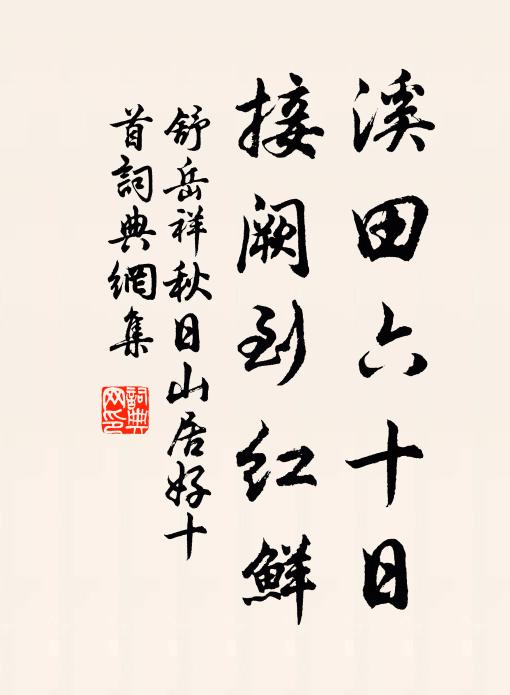 溪田六十日
接阙到红鲜
舒岳祥秋日山居好十
首詞典網集
詞典网印